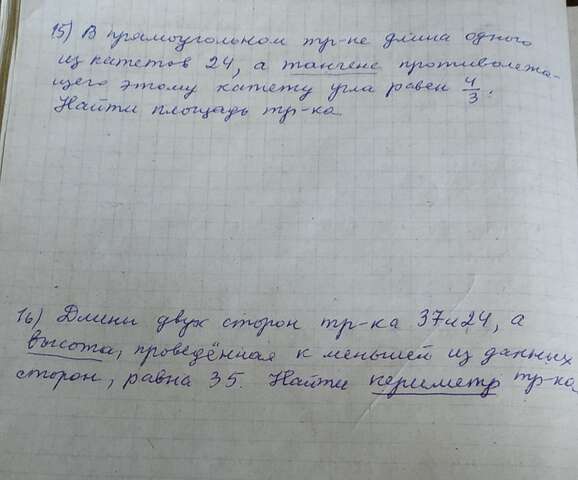 15) В прямоугольном тр-ке длина одного
из катетов 24, а тангенс противолежа-
щего этому катету угла равен 4/3.
Найти площадь тр-ка.
16) Длины двух сторон тр-ка 37 и 24, а
высота, проведённая к меньшей из данных
сторон, равна 35. Найти периметр тр-ка.